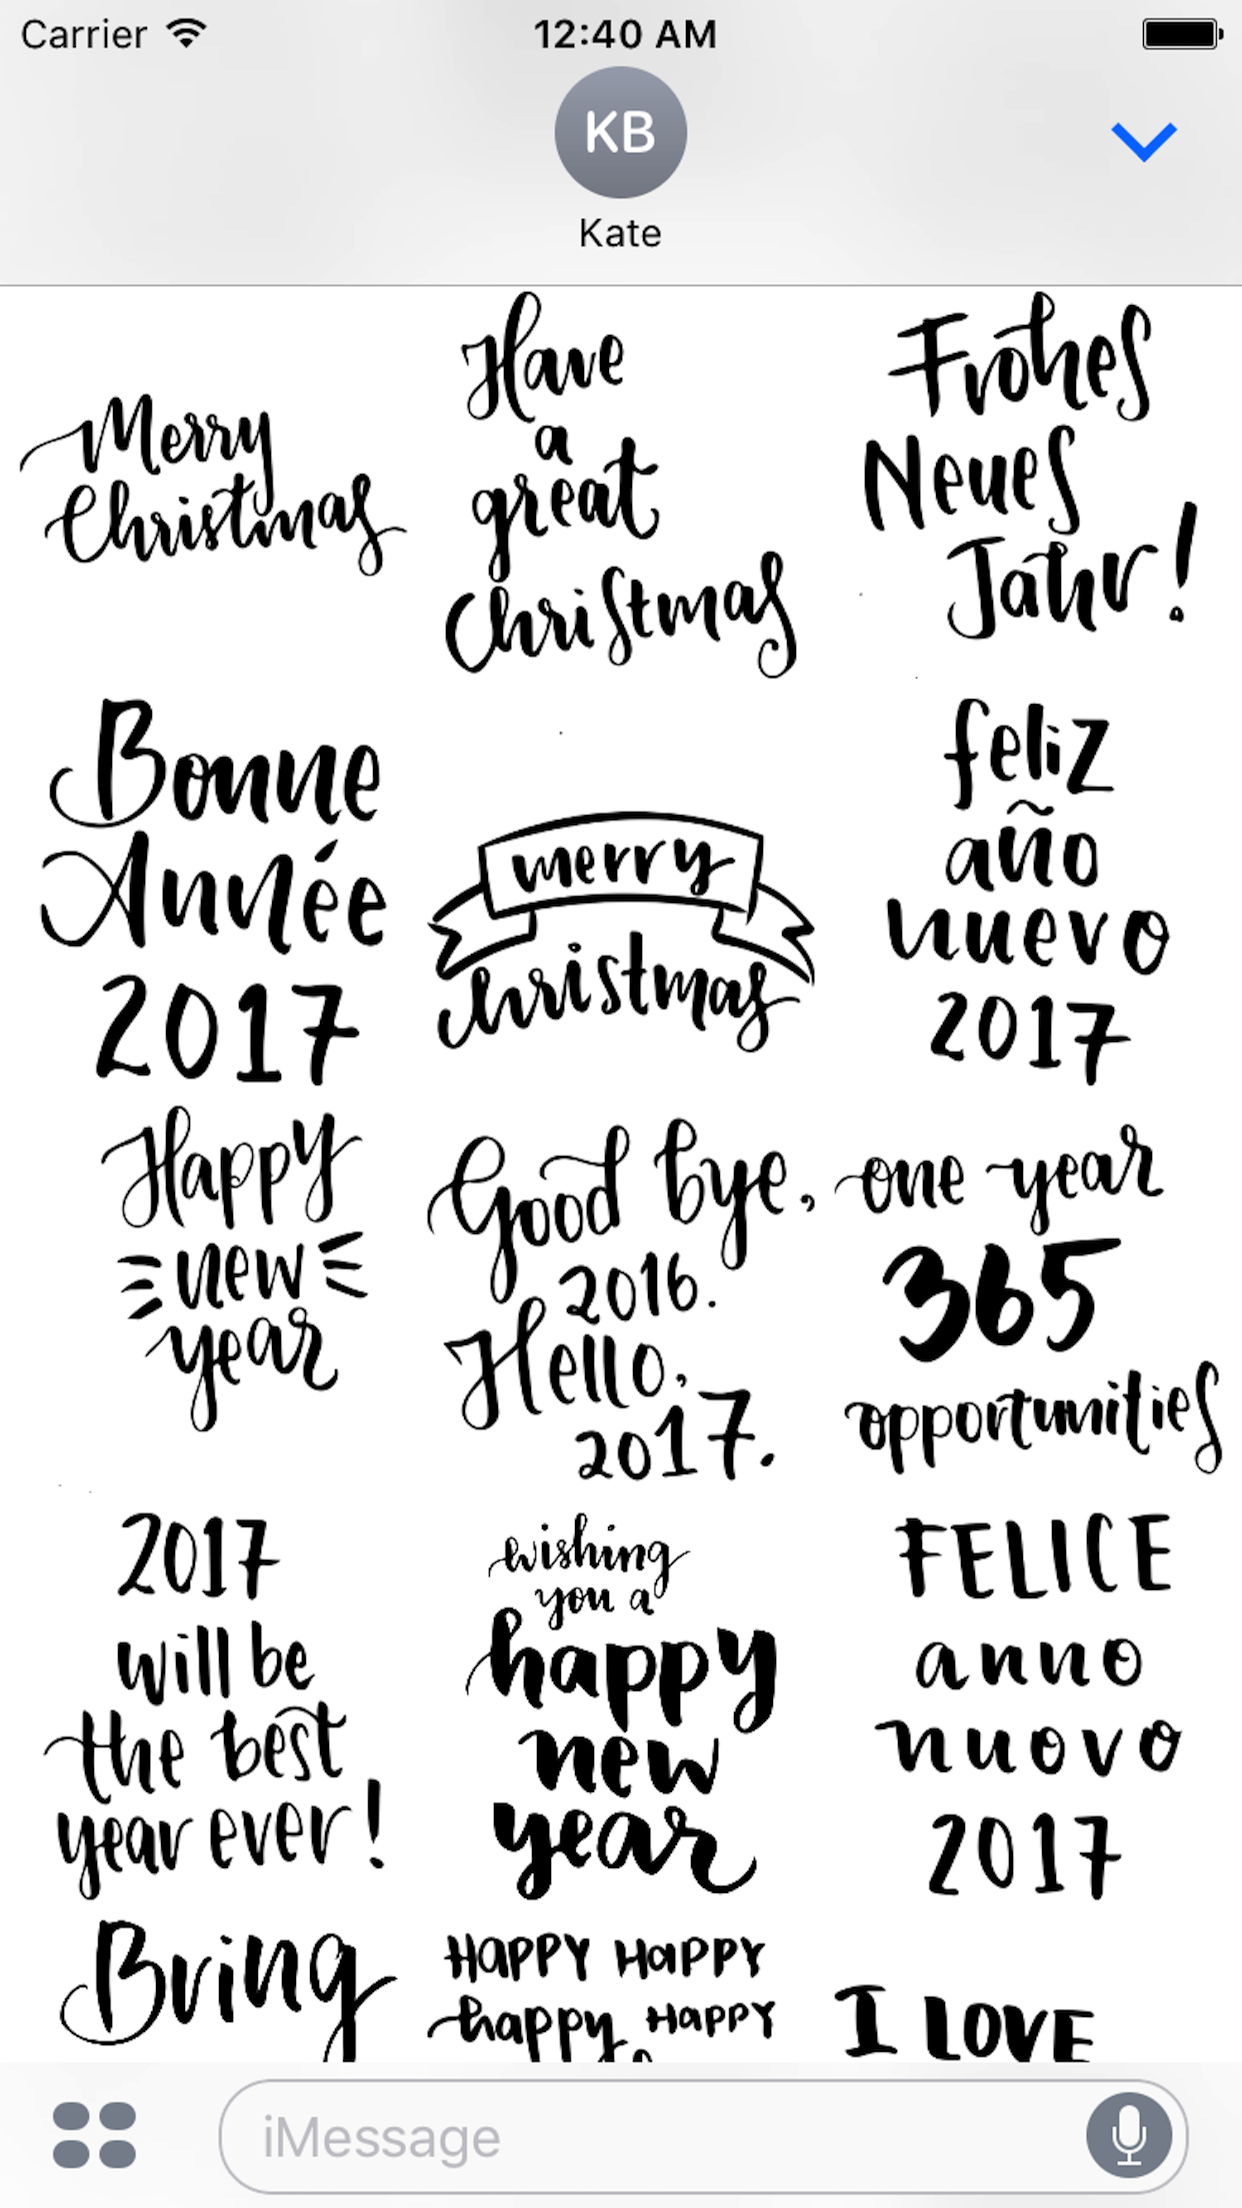 Carrier 12:40 AM
KB
Kate
Merry
Christmas
Have
a
great
Christmas
Frohes
Neues
Jahr!
Bonne
Année
2017
merry
christmas
feliz
año
nuevo
2017
Happy
new
year
Good bye,
2016.
Hello,
2017.
one year
365
opportunities
2017
will be
the best
year ever!
wishing
you a
happy
new
year
FELICE
anno
nuovo
2017
Bring
HAPPY HAPPY
happy HAPPY
I LOVE
iMessage